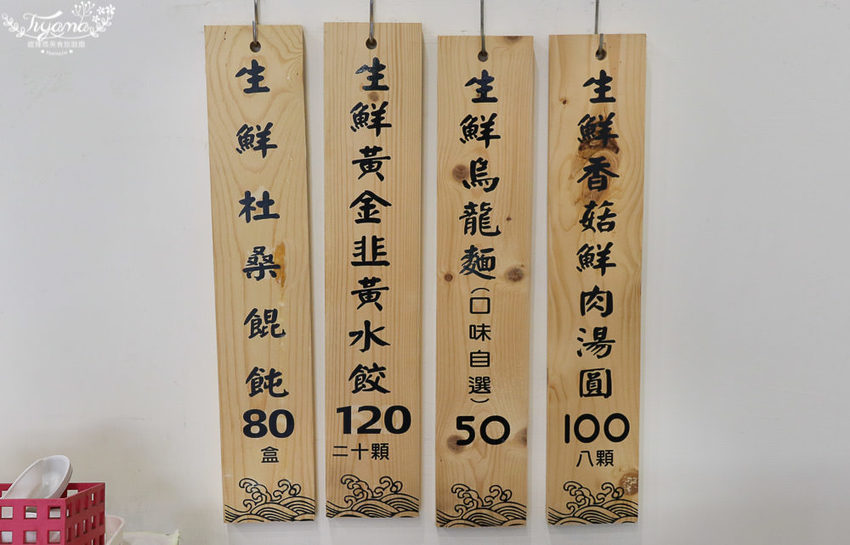 Tiyama
生鮮杜桑餛飩
80
盒
生鮮黃金韭黃水餃
120
二十顆
生鮮烏龍麵(口味自選)
50
生鮮香菇鮮肉湯圓
100
八顆